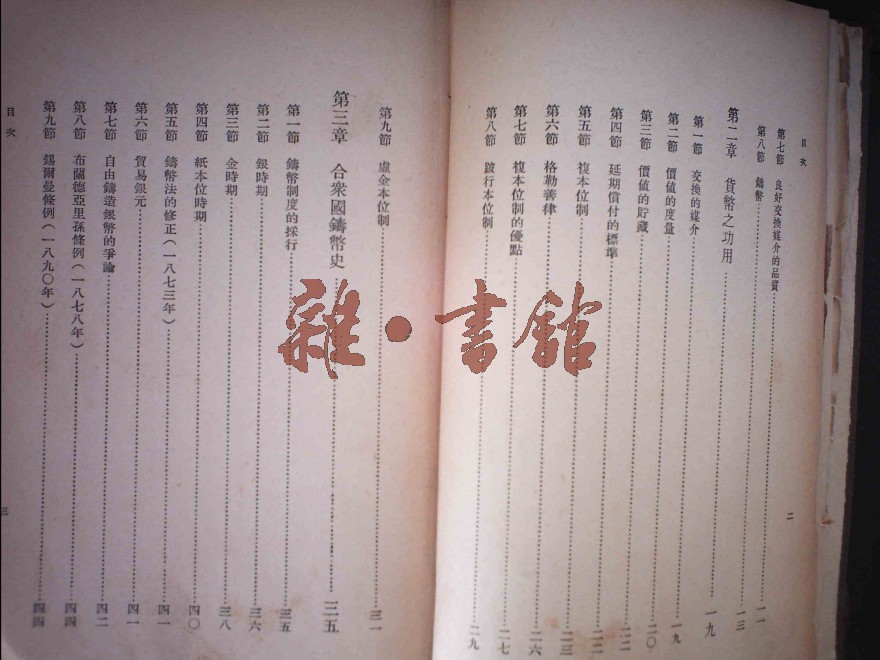 目次
第七節 良好交換媒介的品質 一一
第八節 鑄幣 一三
第二章 貨幣之功用 一九
第一節 交換的媒介 一九
第二節 價値的度量 二〇
第三節 價値的貯藏 二二
第四節 延期償付的標準 二二
第五節 複本位制 二三
第六節 格勒善律 二六
第七節 複本位制的優點 二七
第八節 跛行本位制 二九
二
第九節 虛金本位制 三一
第三章 合衆國鑄幣史 三五
第一節 鑄幣制度的採行 三五
第二節 銀時期 三六
第三節 金時期 三八
第四節 紙本位時期 四〇
第五節 鑄幣法的修正(一八七三年) 四一
第六節 貿易銀元 四一
第七節 自由鑄造銀幣的爭論 四二
第八節 布蘭德亞里孫條例(一八七八年) 四四
第九節 錫爾曼條例(一八九〇年) 四四
目次
三
雜·書館